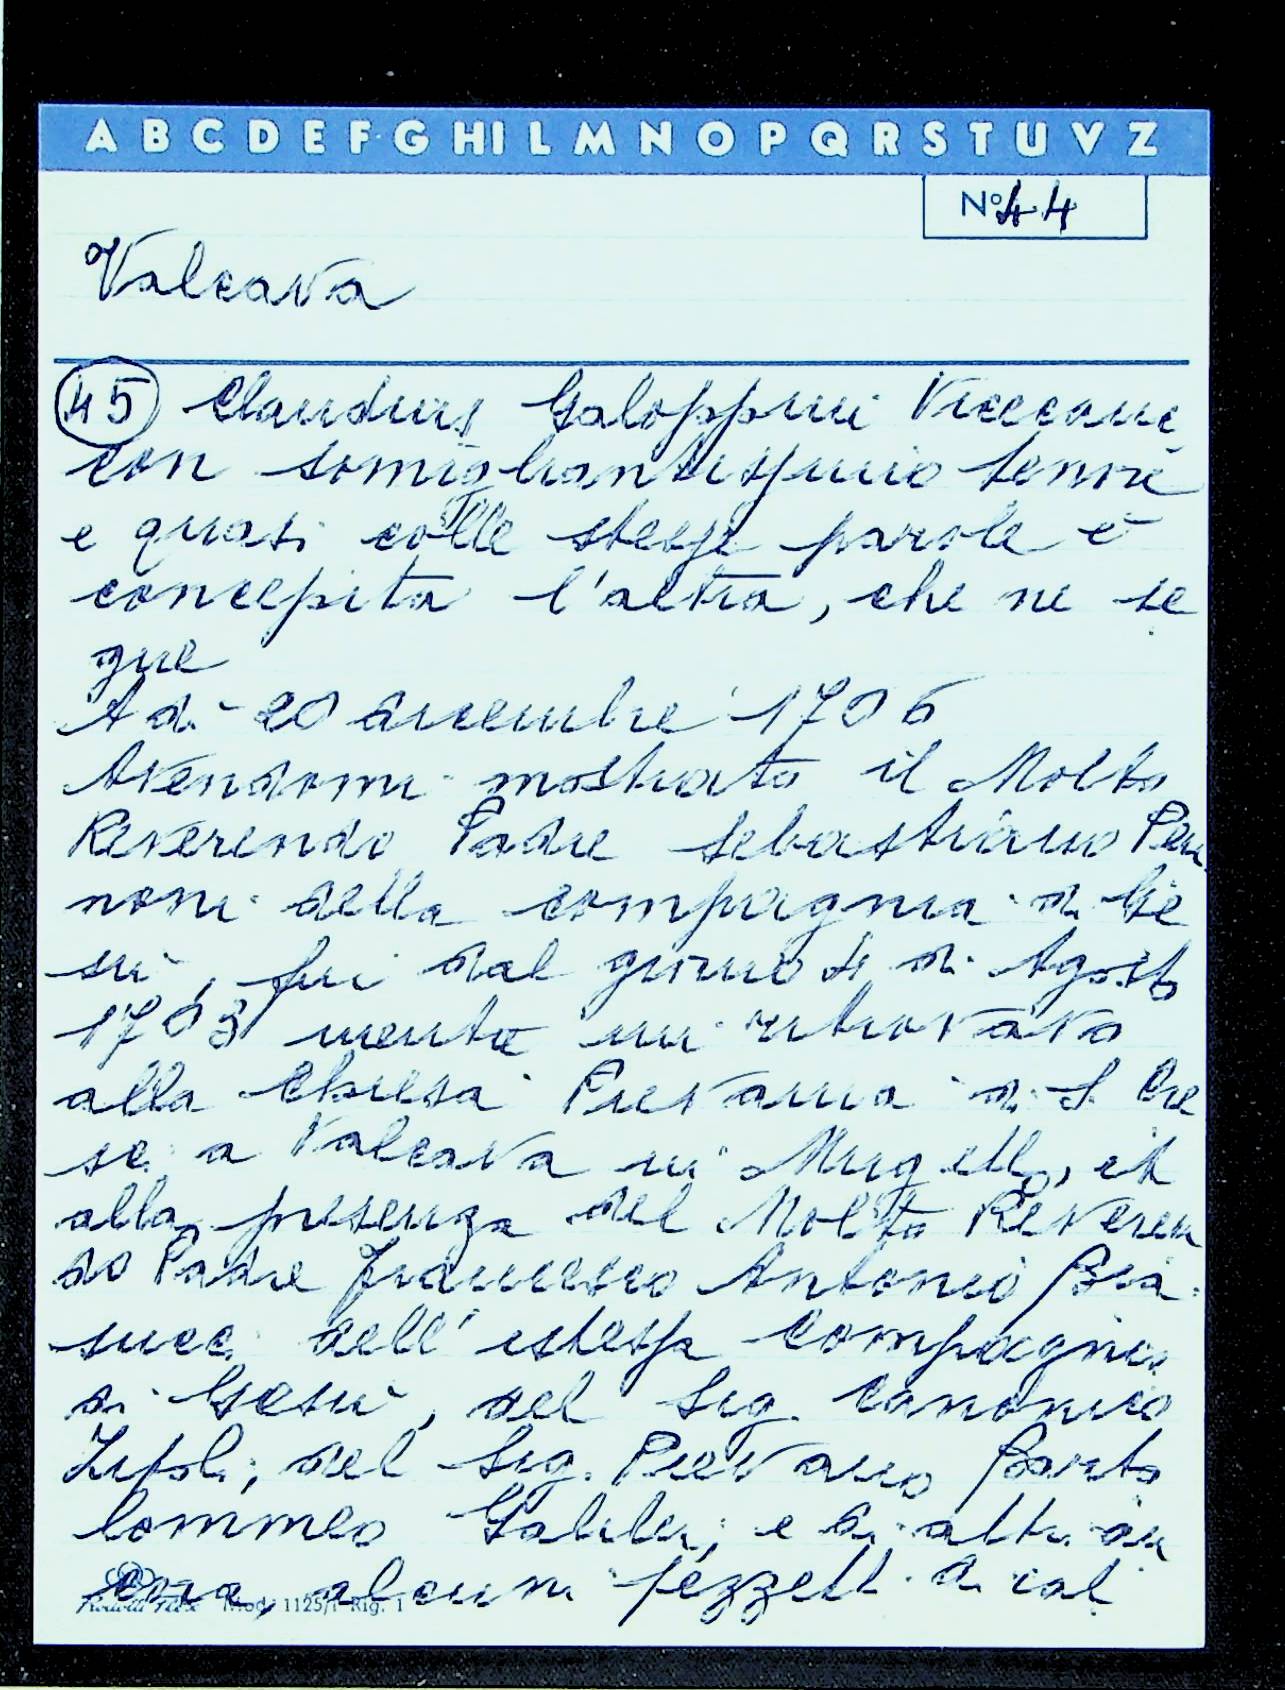 A B C D E F G H I L M N O P Q R S T U V Z
N° 44
Valcava
45 Claudius Galoppini Vicccane
con somigliantissimo tenore
e quasi colle stesse parole è
concepita l'altra, che ne se
gue
A di 20 dicembre 1706
Avendomi mostrato il Molto
Reverendo Padre Sebastiano
noni della compagnia di Gie
sù, fin dal giorno 4 di Agosto
1703 mentre mi ritrovavo
alla Chiesa Pievania di S. Cre
sci a Valcava in Mugello, et
alla presenza del Molto Reveren
do Padre Francesco Antonio
succi dell' istessa Compagnia
di Gesù, del Sig. Canonico
Zipoli, del Sig. Pievano Barto
lommeo Galilei, e di altri an
cora, alcuni pezzetti di cal
Mod. 1125/1 Rig. 1